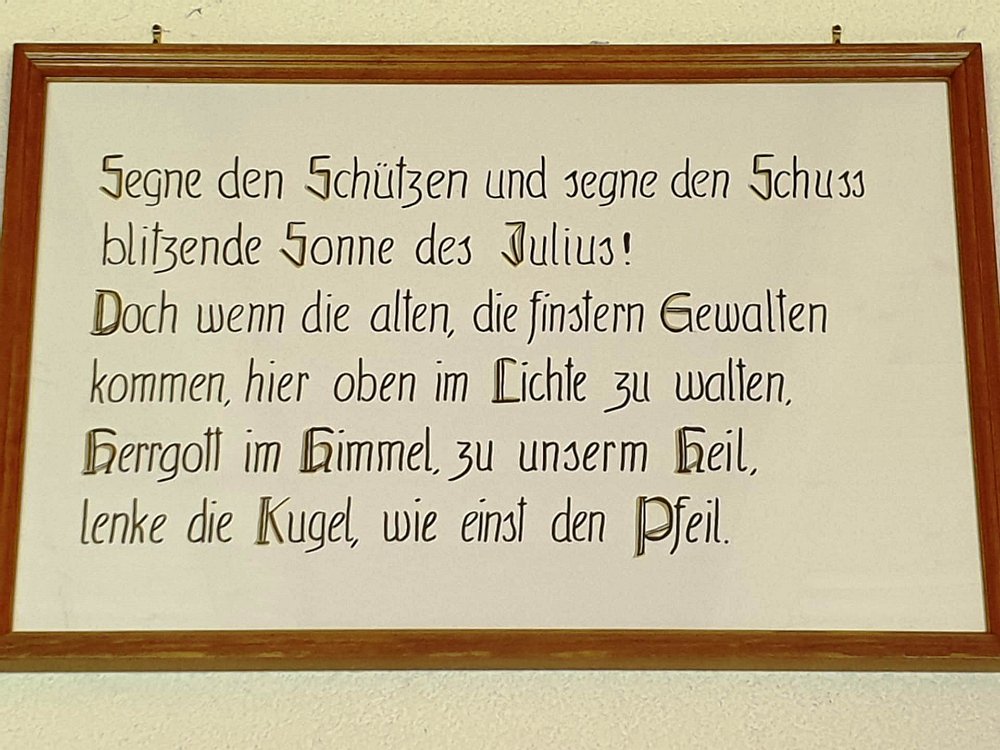 Segne den Schützen und segne den Schuss
blitzende Sonne des Julius!
Doch wenn die alten, die finstern Gewalten
kommen, hier oben im Lichte zu walten,
Herrgott im Himmel, zu unserm Heil,
lenke die Kugel, wie einst den Pfeil.